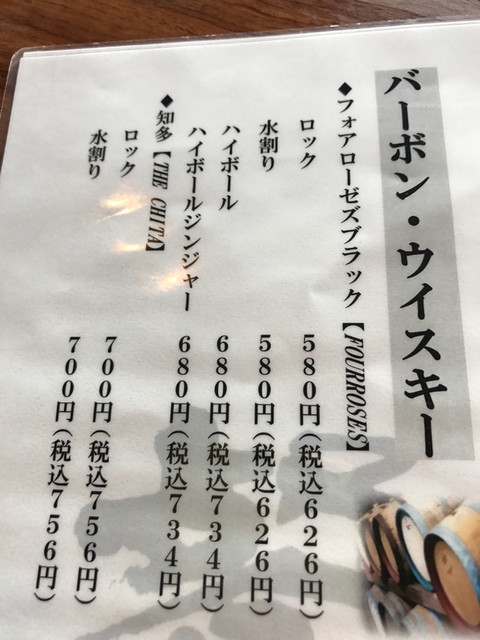 バーボン・ウイスキー
◆フォアローゼズブラック【FOURROSES】
ロック 580円（税込626円）
水割り 580円（税込626円）
ハイボール 680円（税込734円）
ハイボールジンジャー 680円（税込734円）
◆知多【THE CHITA】
ロック 700円（税込756円）
水割り 700円（税込756円）